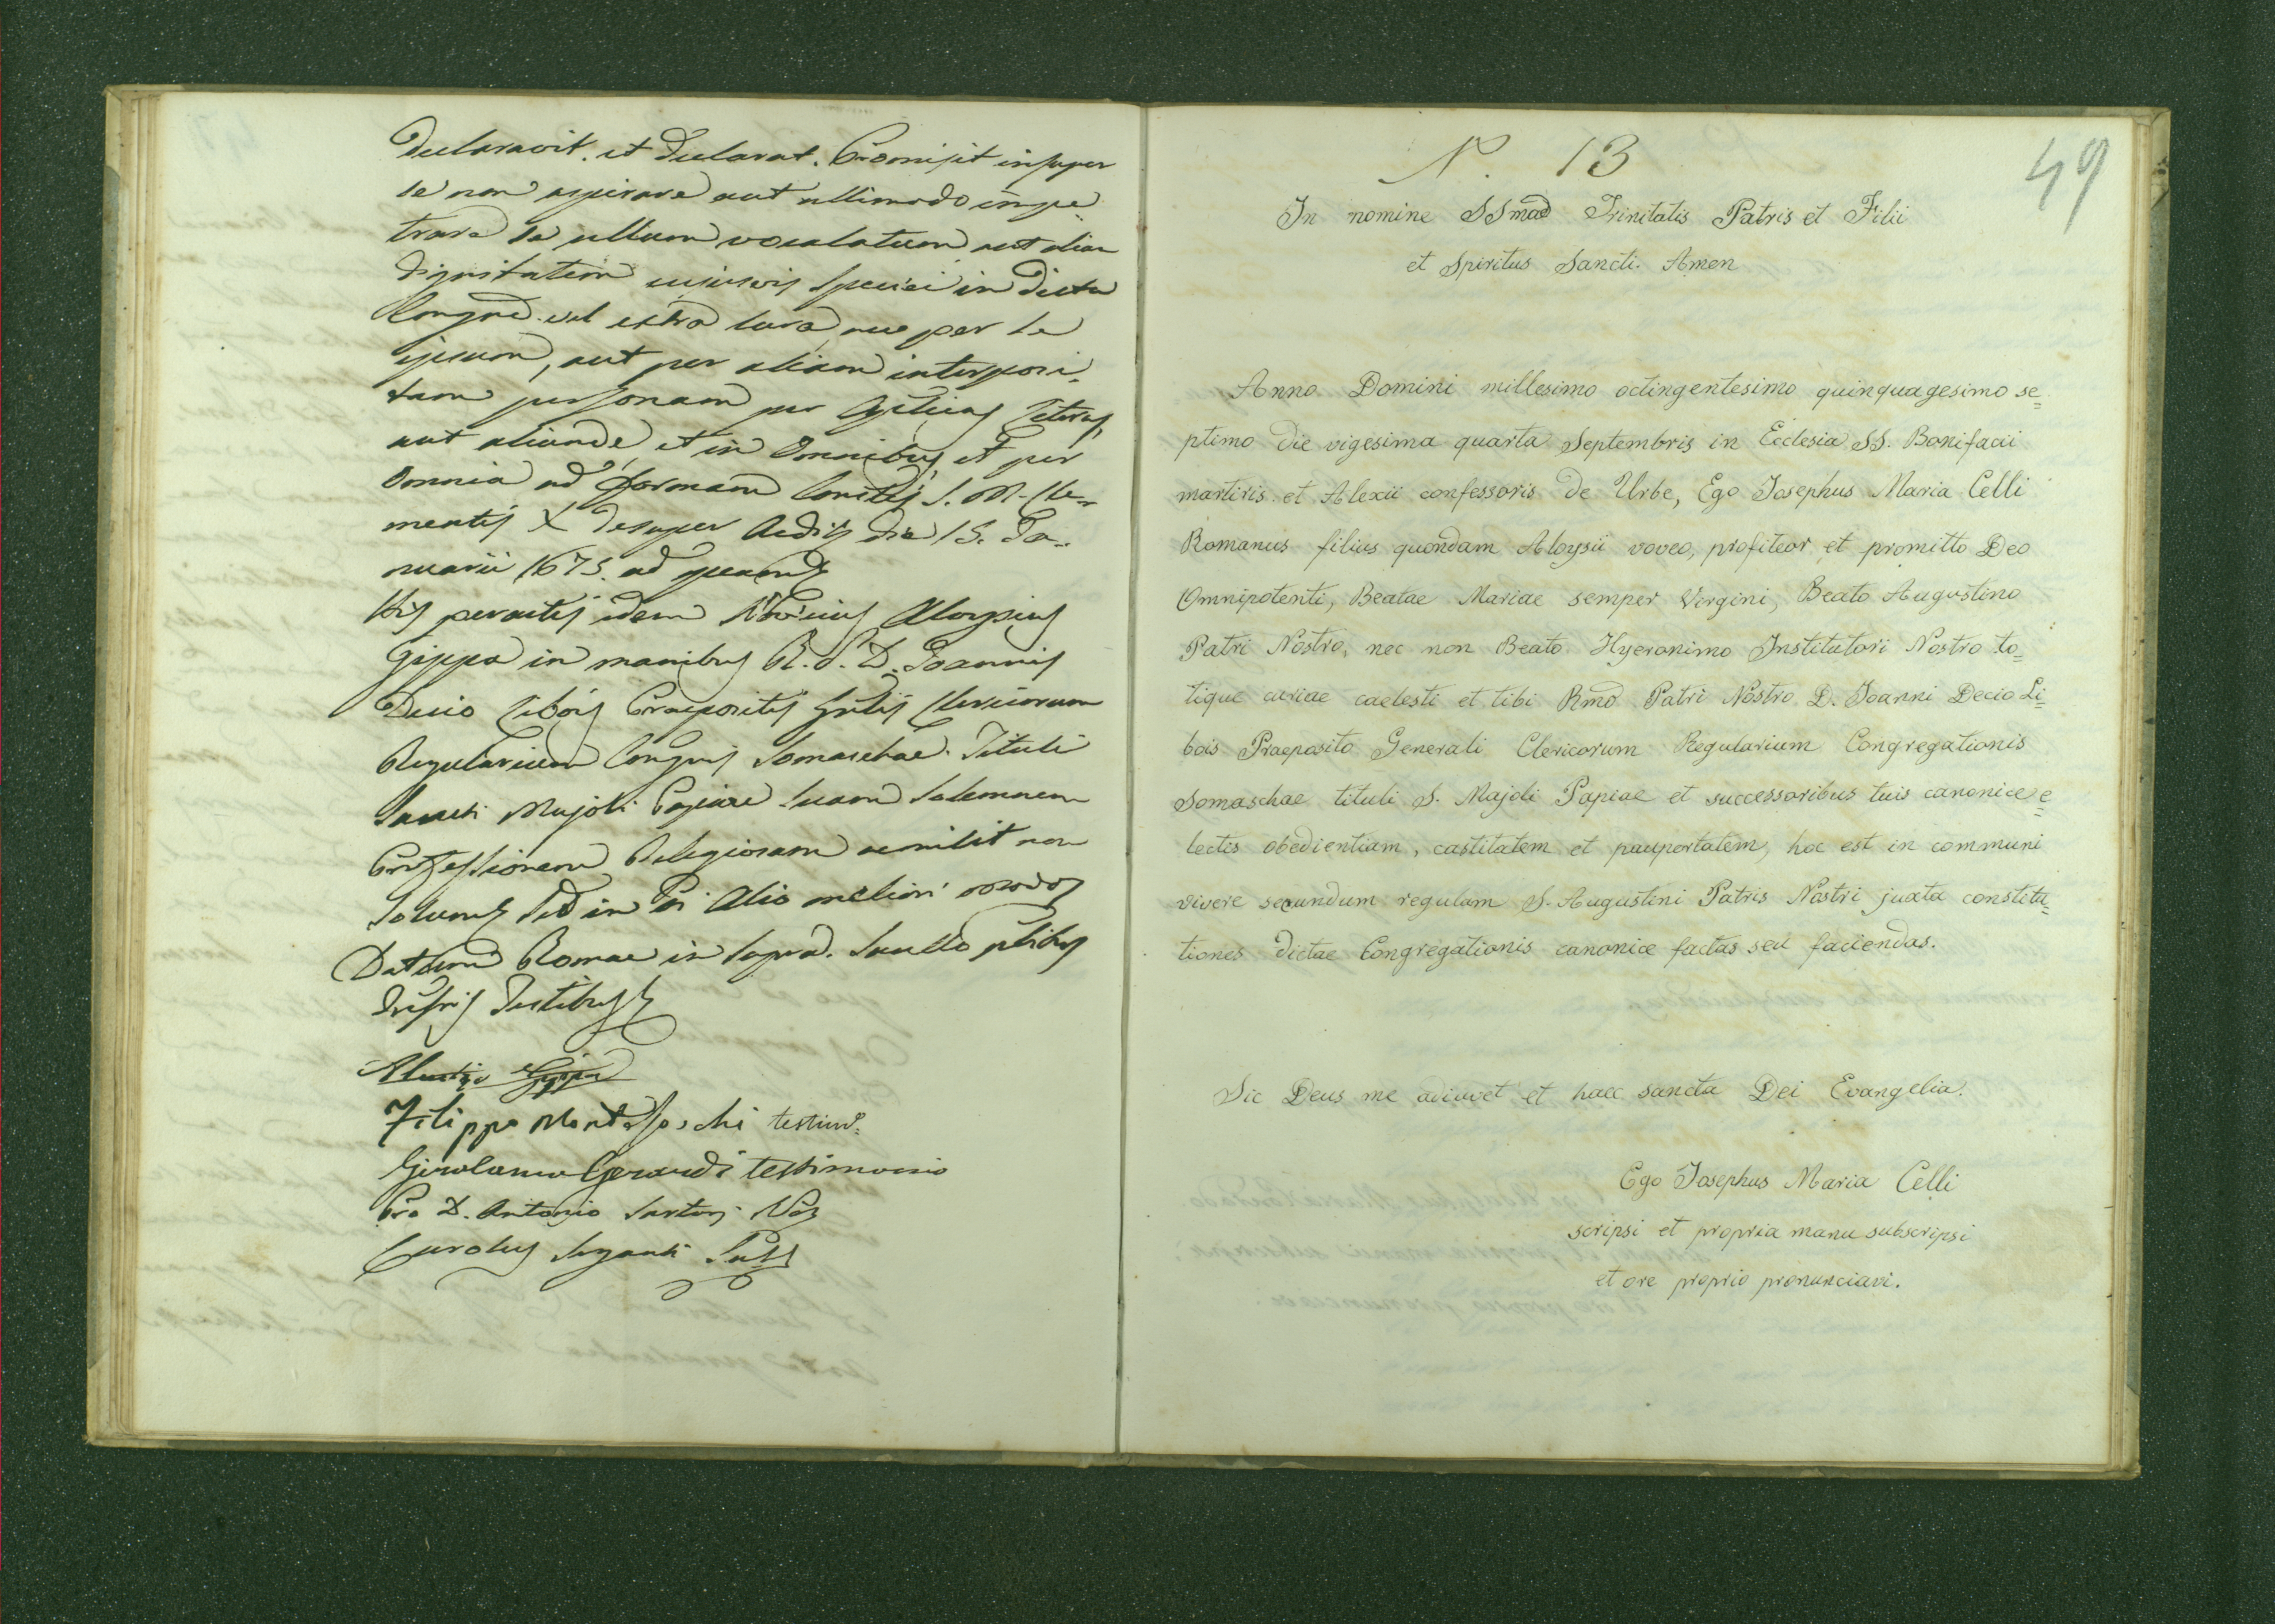 declaravit, et declarat. Promisit insuper
se non aspirare aut ullimodo impe
trare se ullum vocalatum aut aliam
dignitatem cuiusvis speciei in dicta
Congne. vel extra eam, nec per se
ipsum, aut per aliam interposi-
tam personam per Aplicas literas
aut aliunde, et in omnibus, et per
omnia ad formam Constis S. M. Cle-
mentis X desuper edits die 15. Ja-
nuarii 1675. ad
His peractis idem Aloysius
Gippa in manibus R. P. D. Joannis
Decio Libois Praepositis Gnlis Clericorum
Regularium Congnis Somaschae. Tituli
Sancti Majoli Papiae suam solemnem
Professionem Religiosam emisit non
solum sed in alio meliori modo
Datum Romae in suprad. Sacello pntibus
infris Testibus
Gippa
Filippo testimo.
Girolamo Gerardi testimonio
Pro D. Antonio Sartori Not
Carolus Subs
N. 13
49
In nomine SSmae Trinitatis Patris et Filii
et Spiritus Sancti. Amen
Anno Domini millesimo octingentesimo quinquagesimo se=
ptimo die vigesima quarta Septembris in Ecclesia SS. Bonifacii
martiris et Alexii confessoris de Urbe, Ego Josephus Maria Celli
Romanus filius quondam Aloysii voveo, profiteor et promitto Deo
Omnipotenti, Beatae Mariae semper Virgini, Beato Augustino
Patri Nostro, nec non Beato Hyeronimo Institutori Nostro to=
tique curiae caelesti et tibi Rmo Patri Nostro D. Joanni Decio Li=
bois Praeposito Generali Clericorum Regularium Congregationis
Somaschae tituli S. Majoli Papiae et successoribus tuis canonice e=
lectis obedientiam, castitatem et paupertatem, hoc est in communi
vivere secundum regulam S. Augustini Patris Nostri juxta constitu=
tiones dictae Congregationis canonice factas seu faciendas.
Sic Deus me adiuvet et haec sancta Dei Evangelia.
Ego Josephus Maria Celli
scripsi et propria manu subscripsi
et ore proprio pronunciavi.